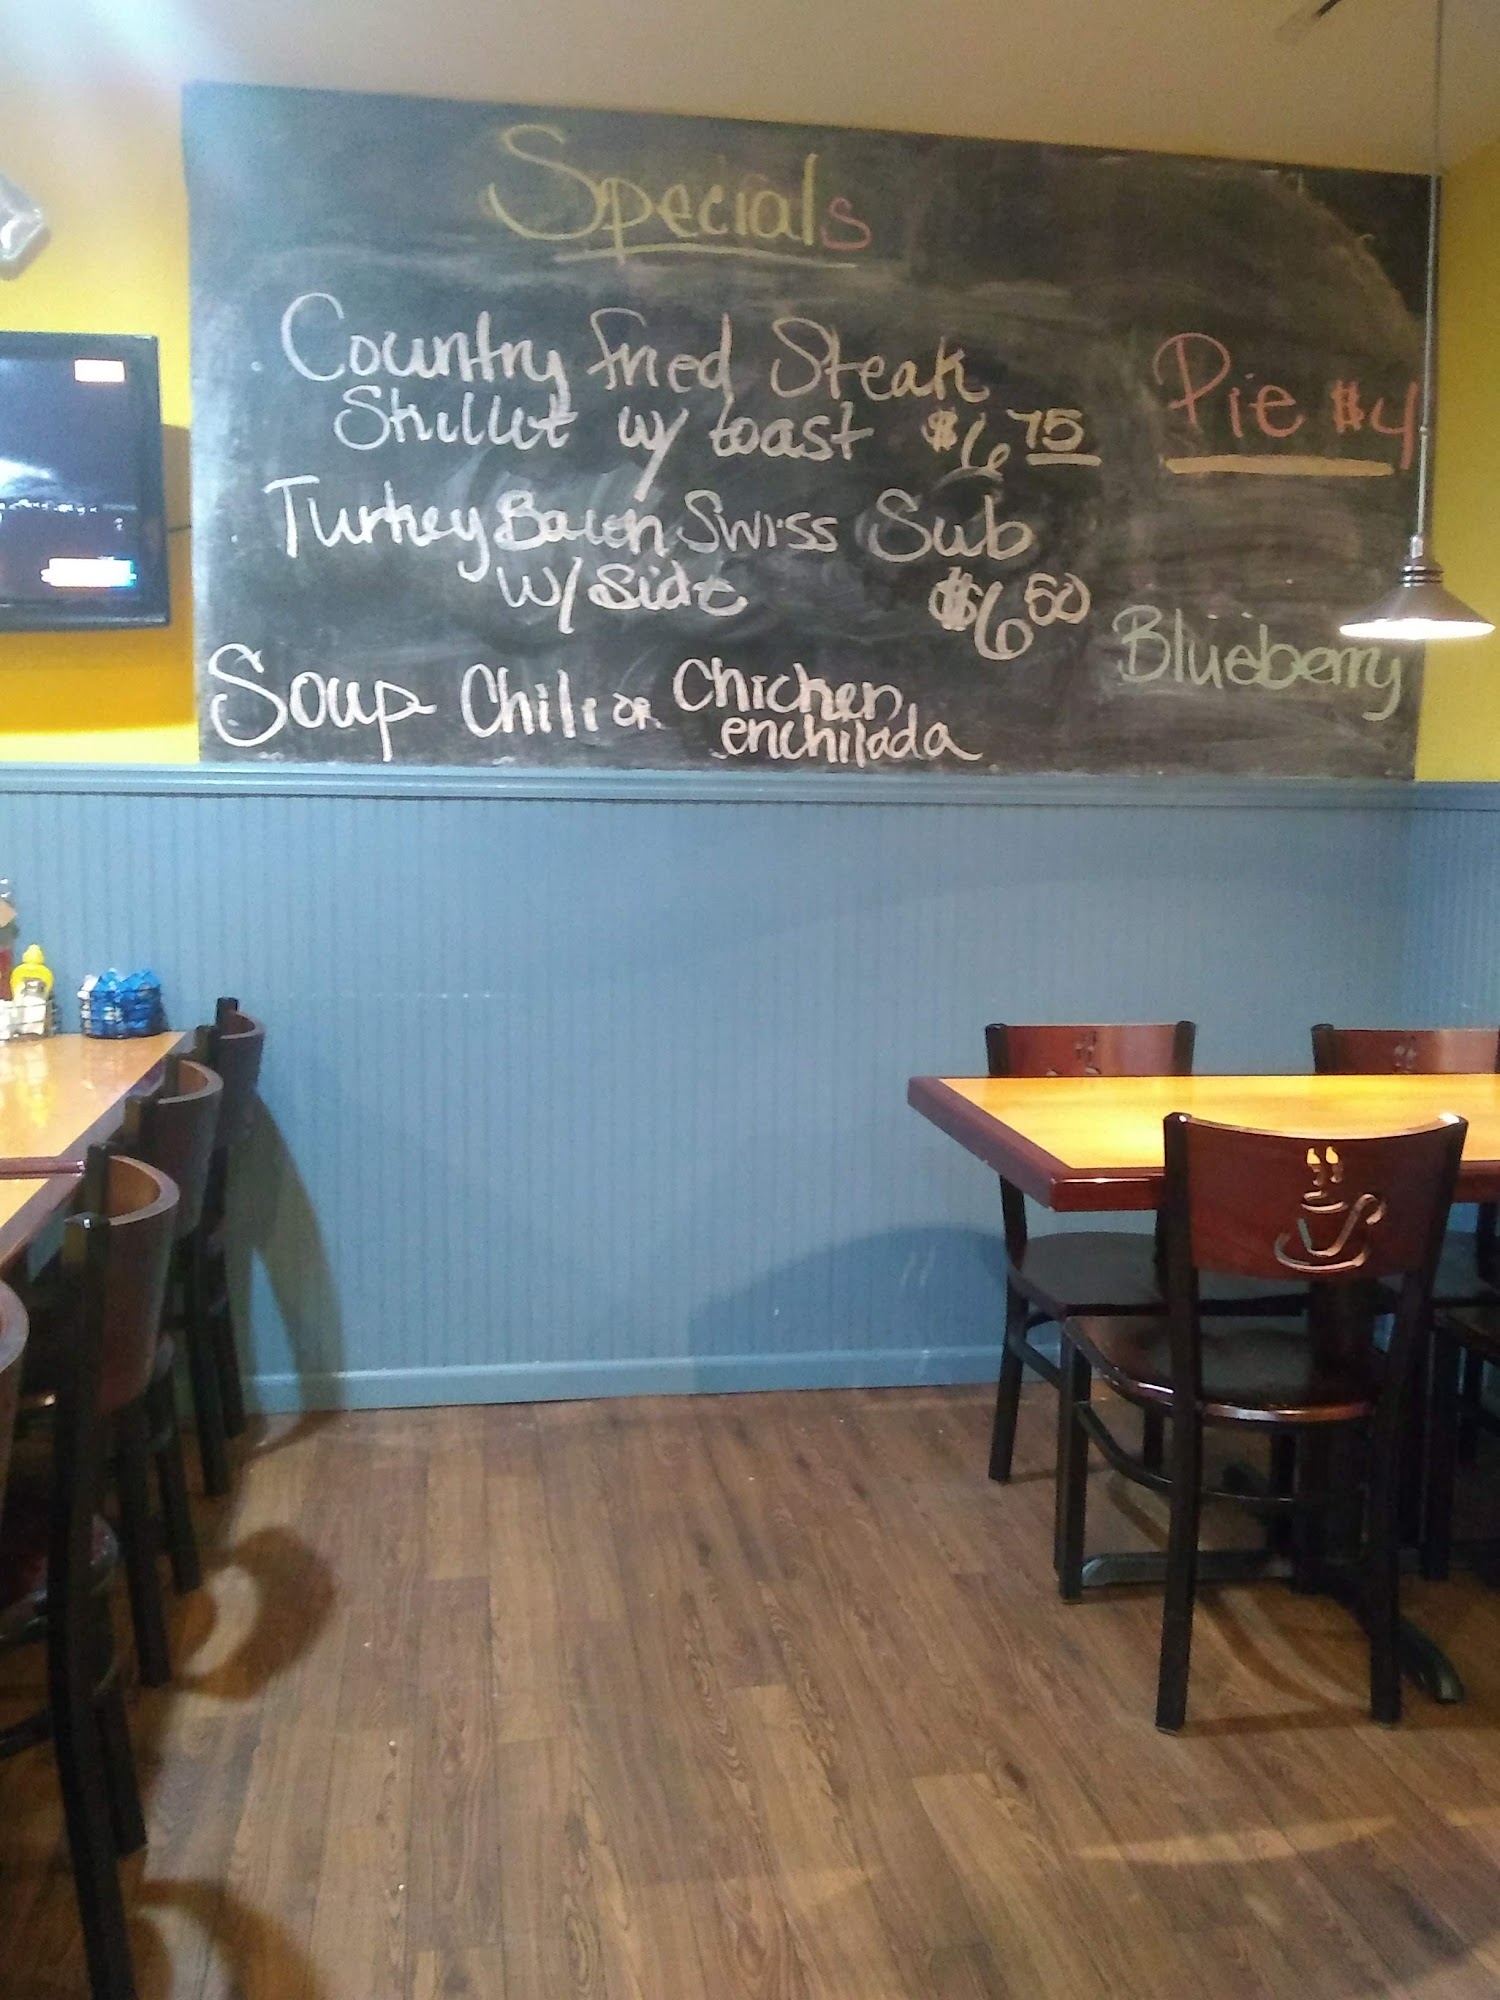 Specials
Country fried Steak
Skillet w/ toast $6 75
Turkey Bacon Swiss Sub
w/ side $6 50
Soup Chili or Chicken
enchilada
Pie $4
Blueberry